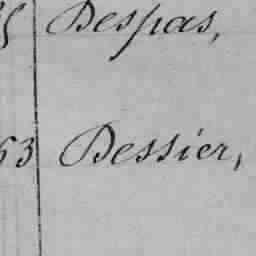 Despas,
53 Dessier,